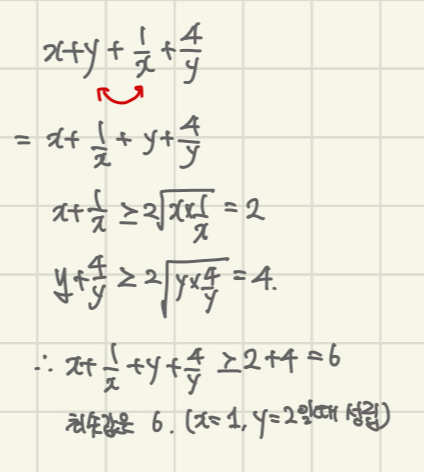 x+y+1/x+4/y
= x+1/x+y+4/y
x+1/x ≥ 2√(x×1/x) = 2
y+4/y ≥ 2√(y×4/y) = 4.
∴ x+1/x+y+4/y ≥ 2+4 = 6
최솟값은 6. (x=1, y=2일때 성립)